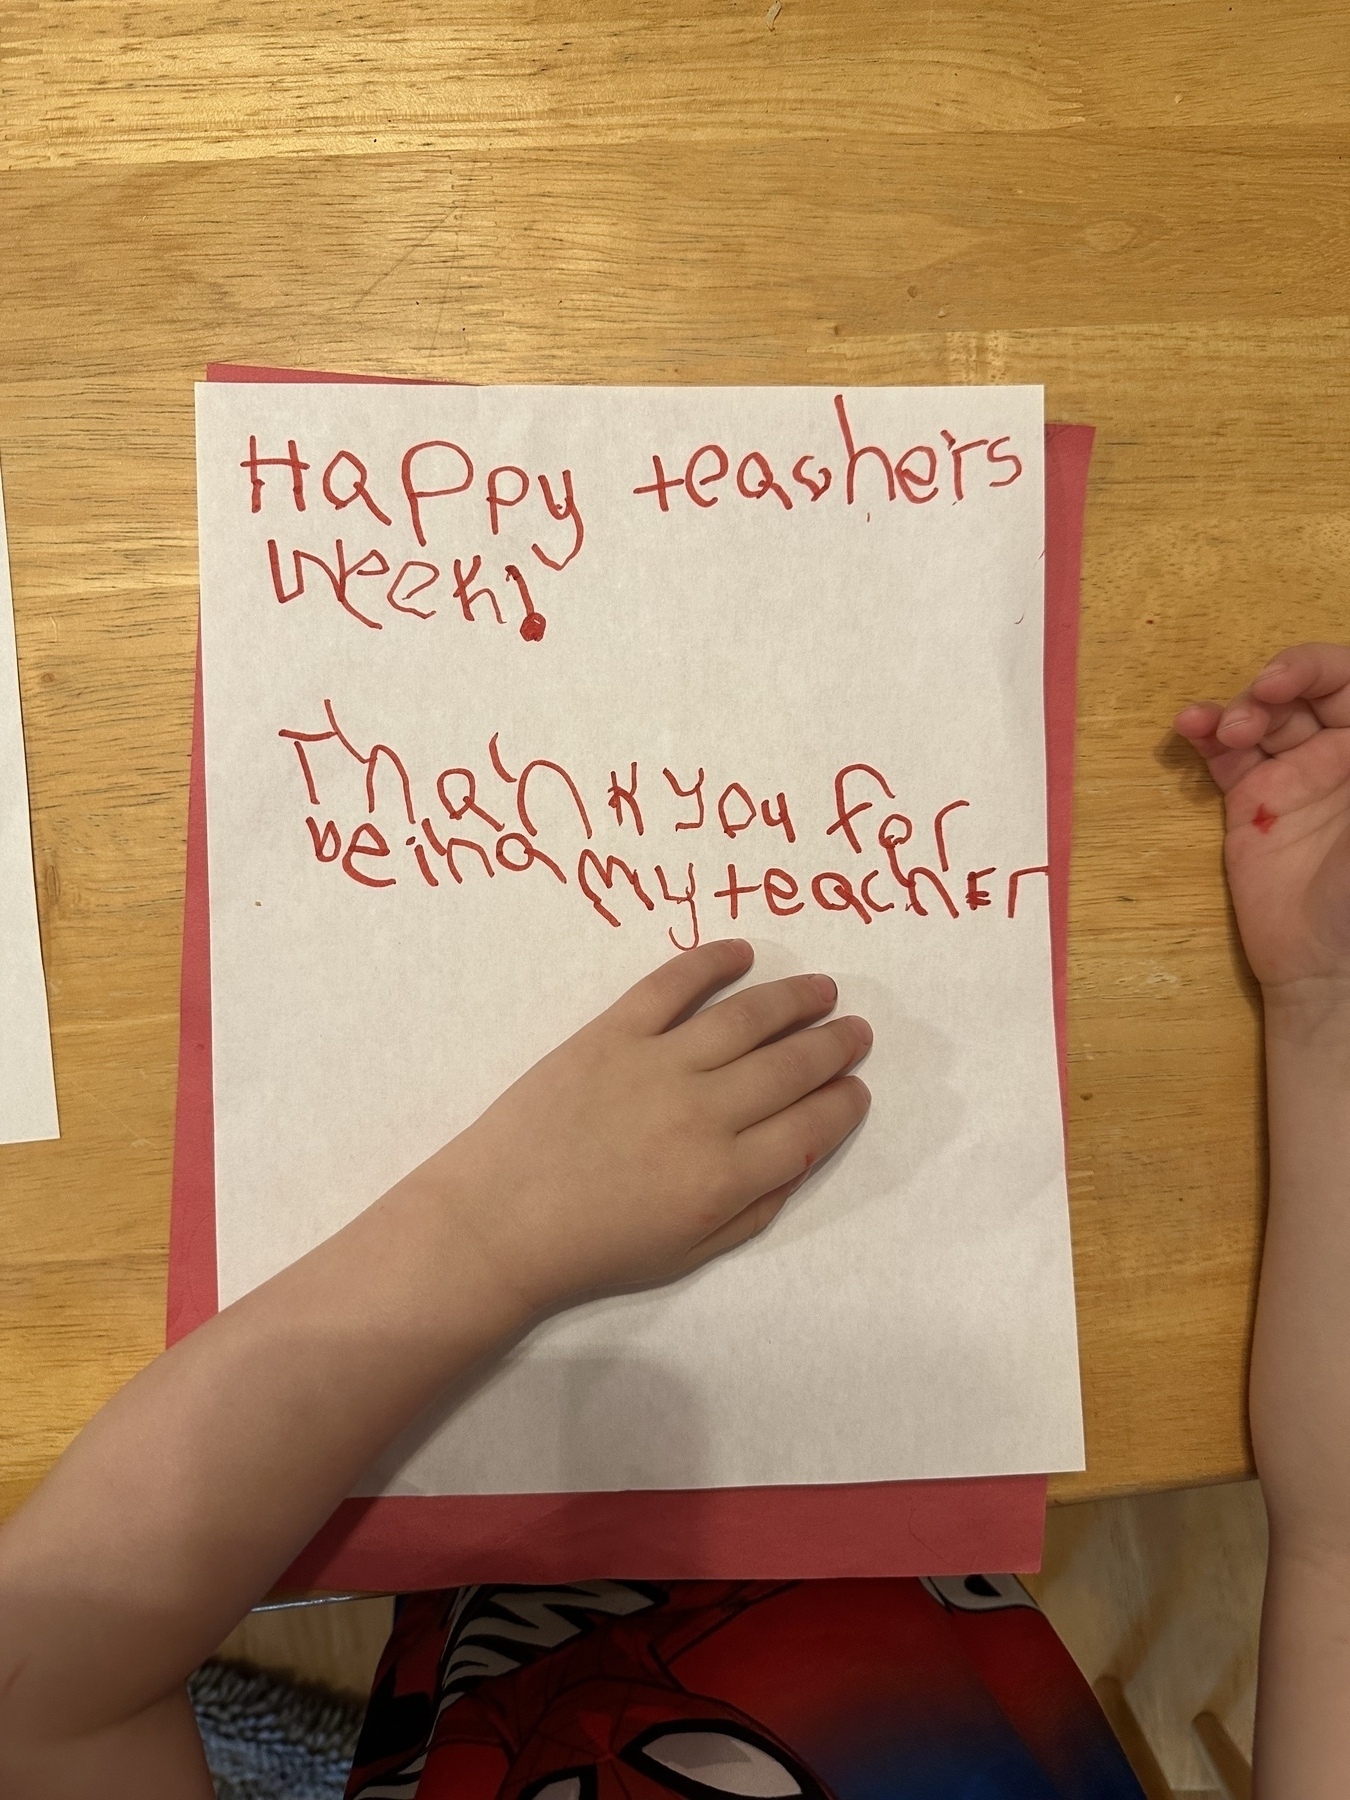 Happy teachers
Week!
Thank you for
being my teacher